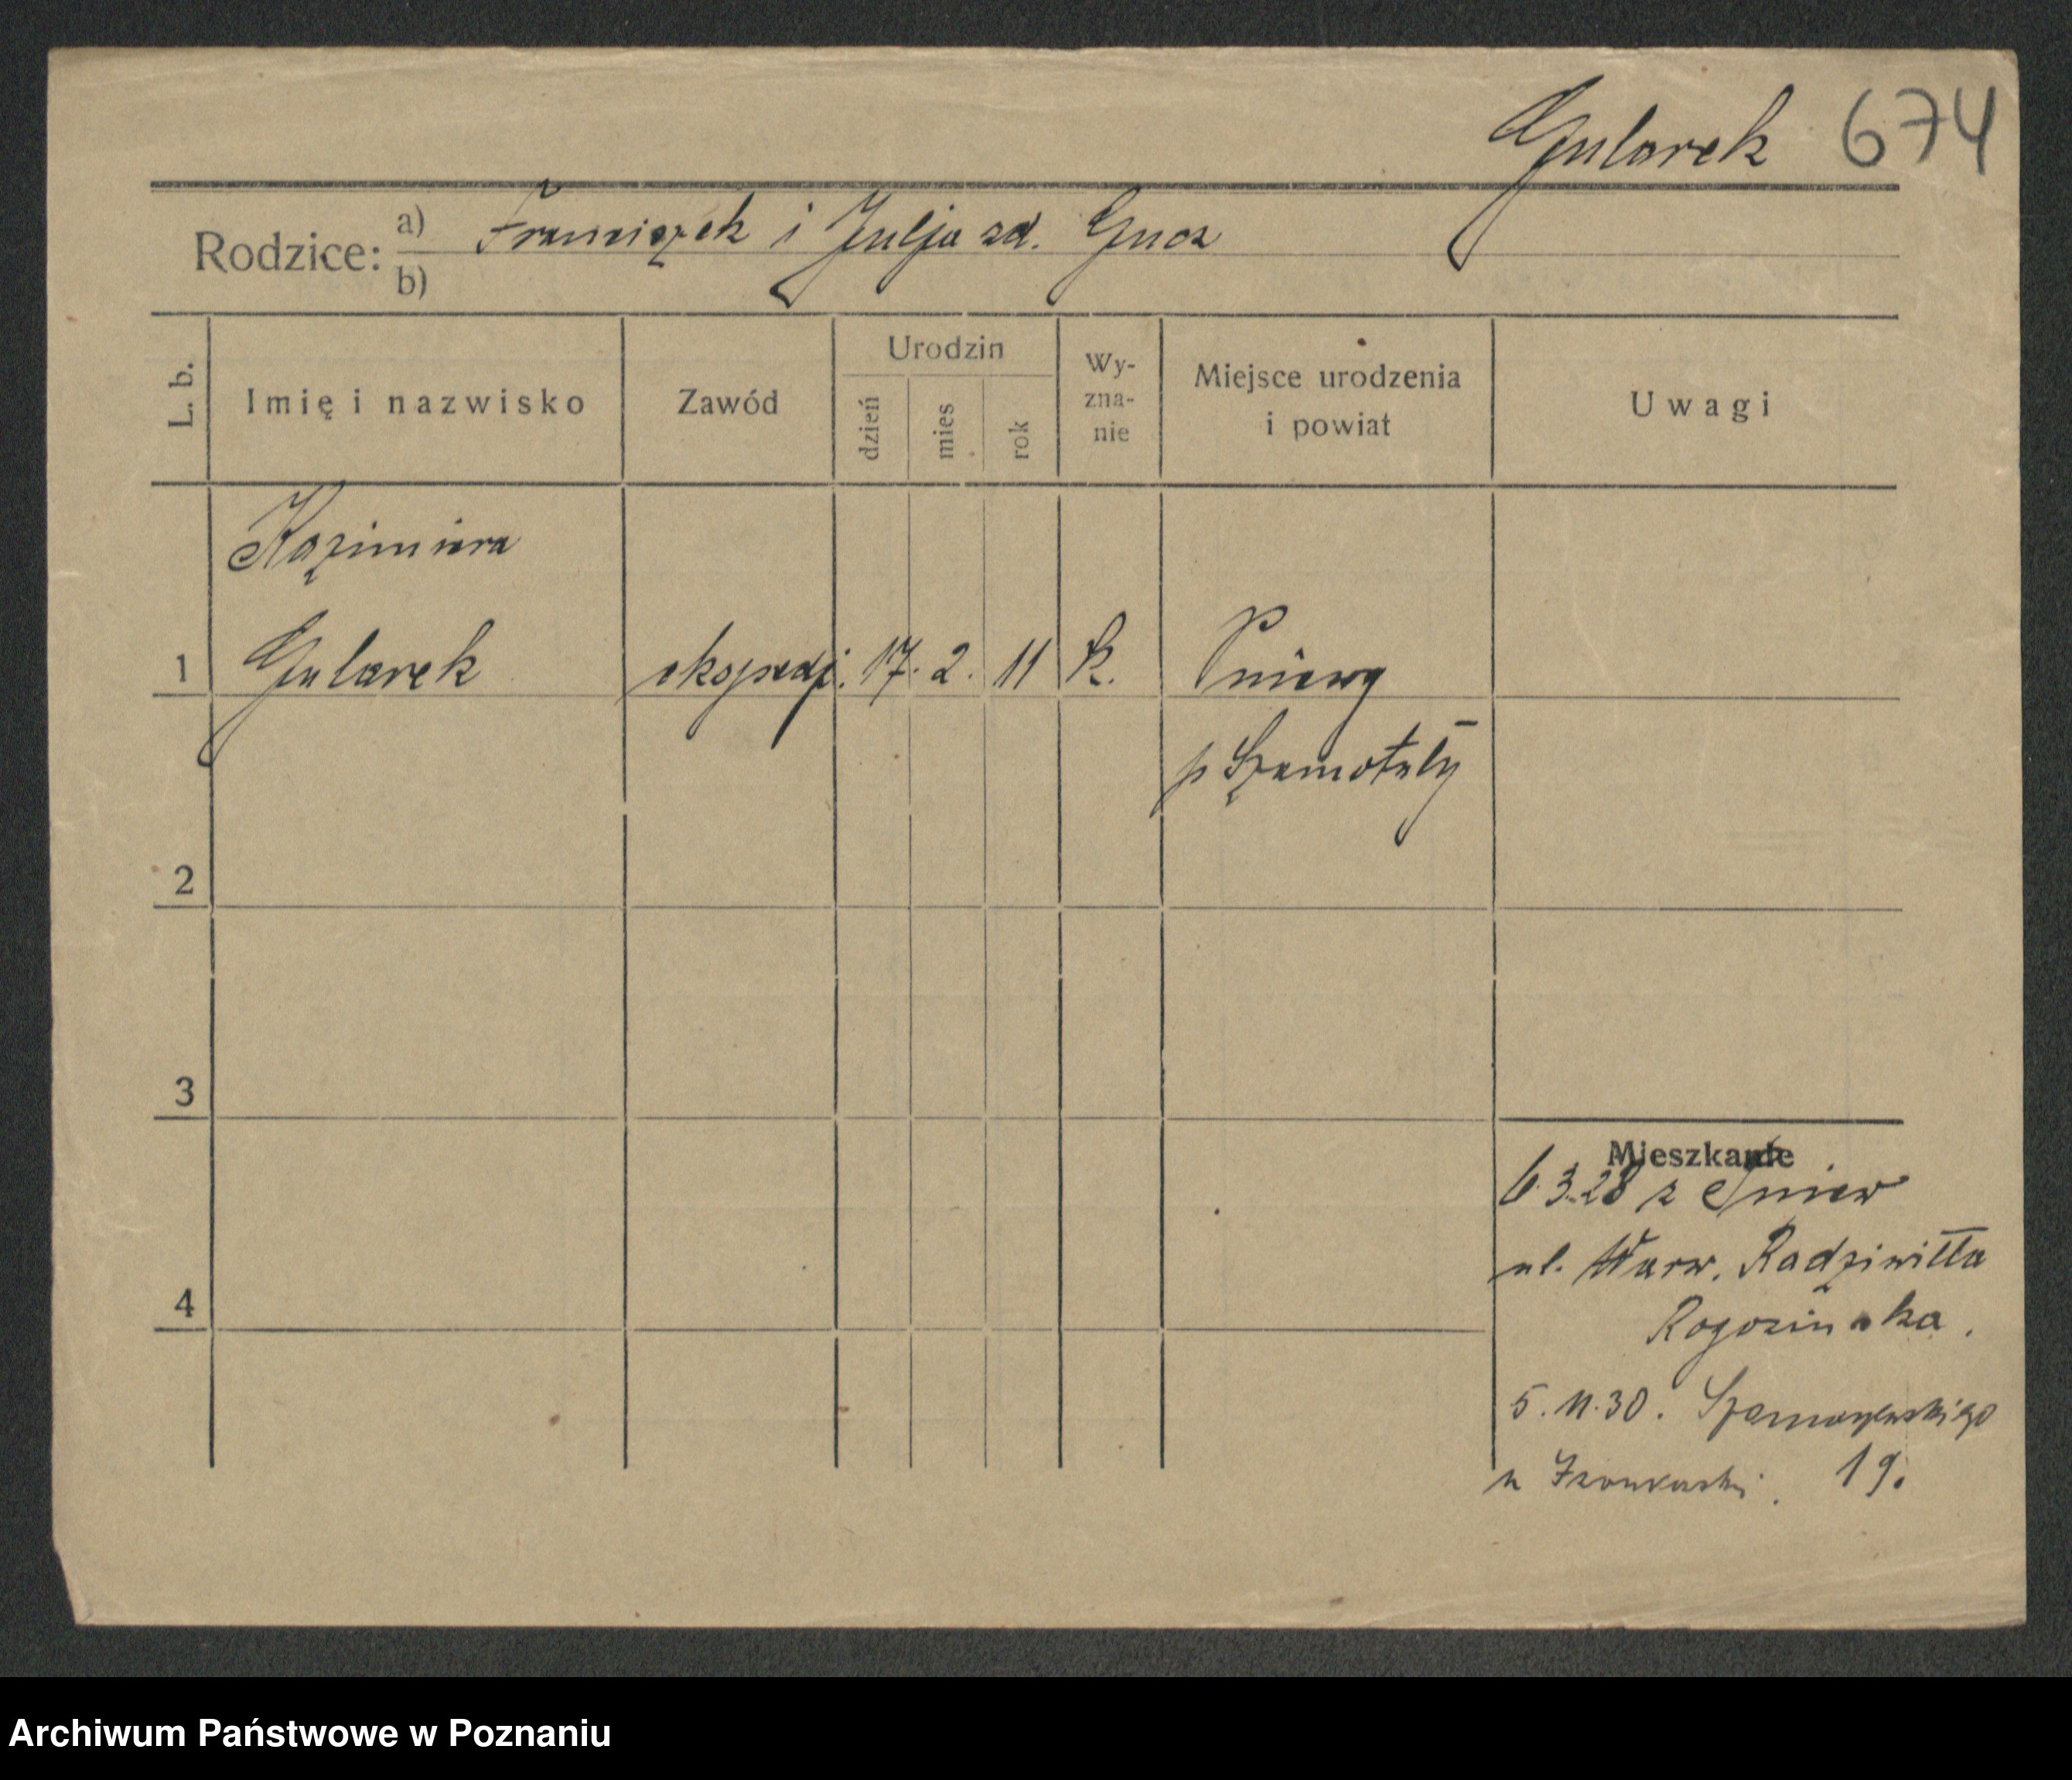 Gularek 674
Rodzice: a) Franciszek i Julja zd. Gucz
b)
L. b. Imię i nazwisko Zawód Urodzin dzień mies rok Wy-zna-nie Miejsce urodzenia i powiat Uwagi
Kazimiera
1 Gularek ekspedj. 17. 2. 11 k. Pniewy
p Szamotuły
2
3
Mieszkanie
6.3.28 z Pniew
4 ul. Wawrz. Radziwiłła
Rogozinska.
5. 11. 30. Szamarzewskiego
u 19.
Archiwum Państwowe w Poznaniu